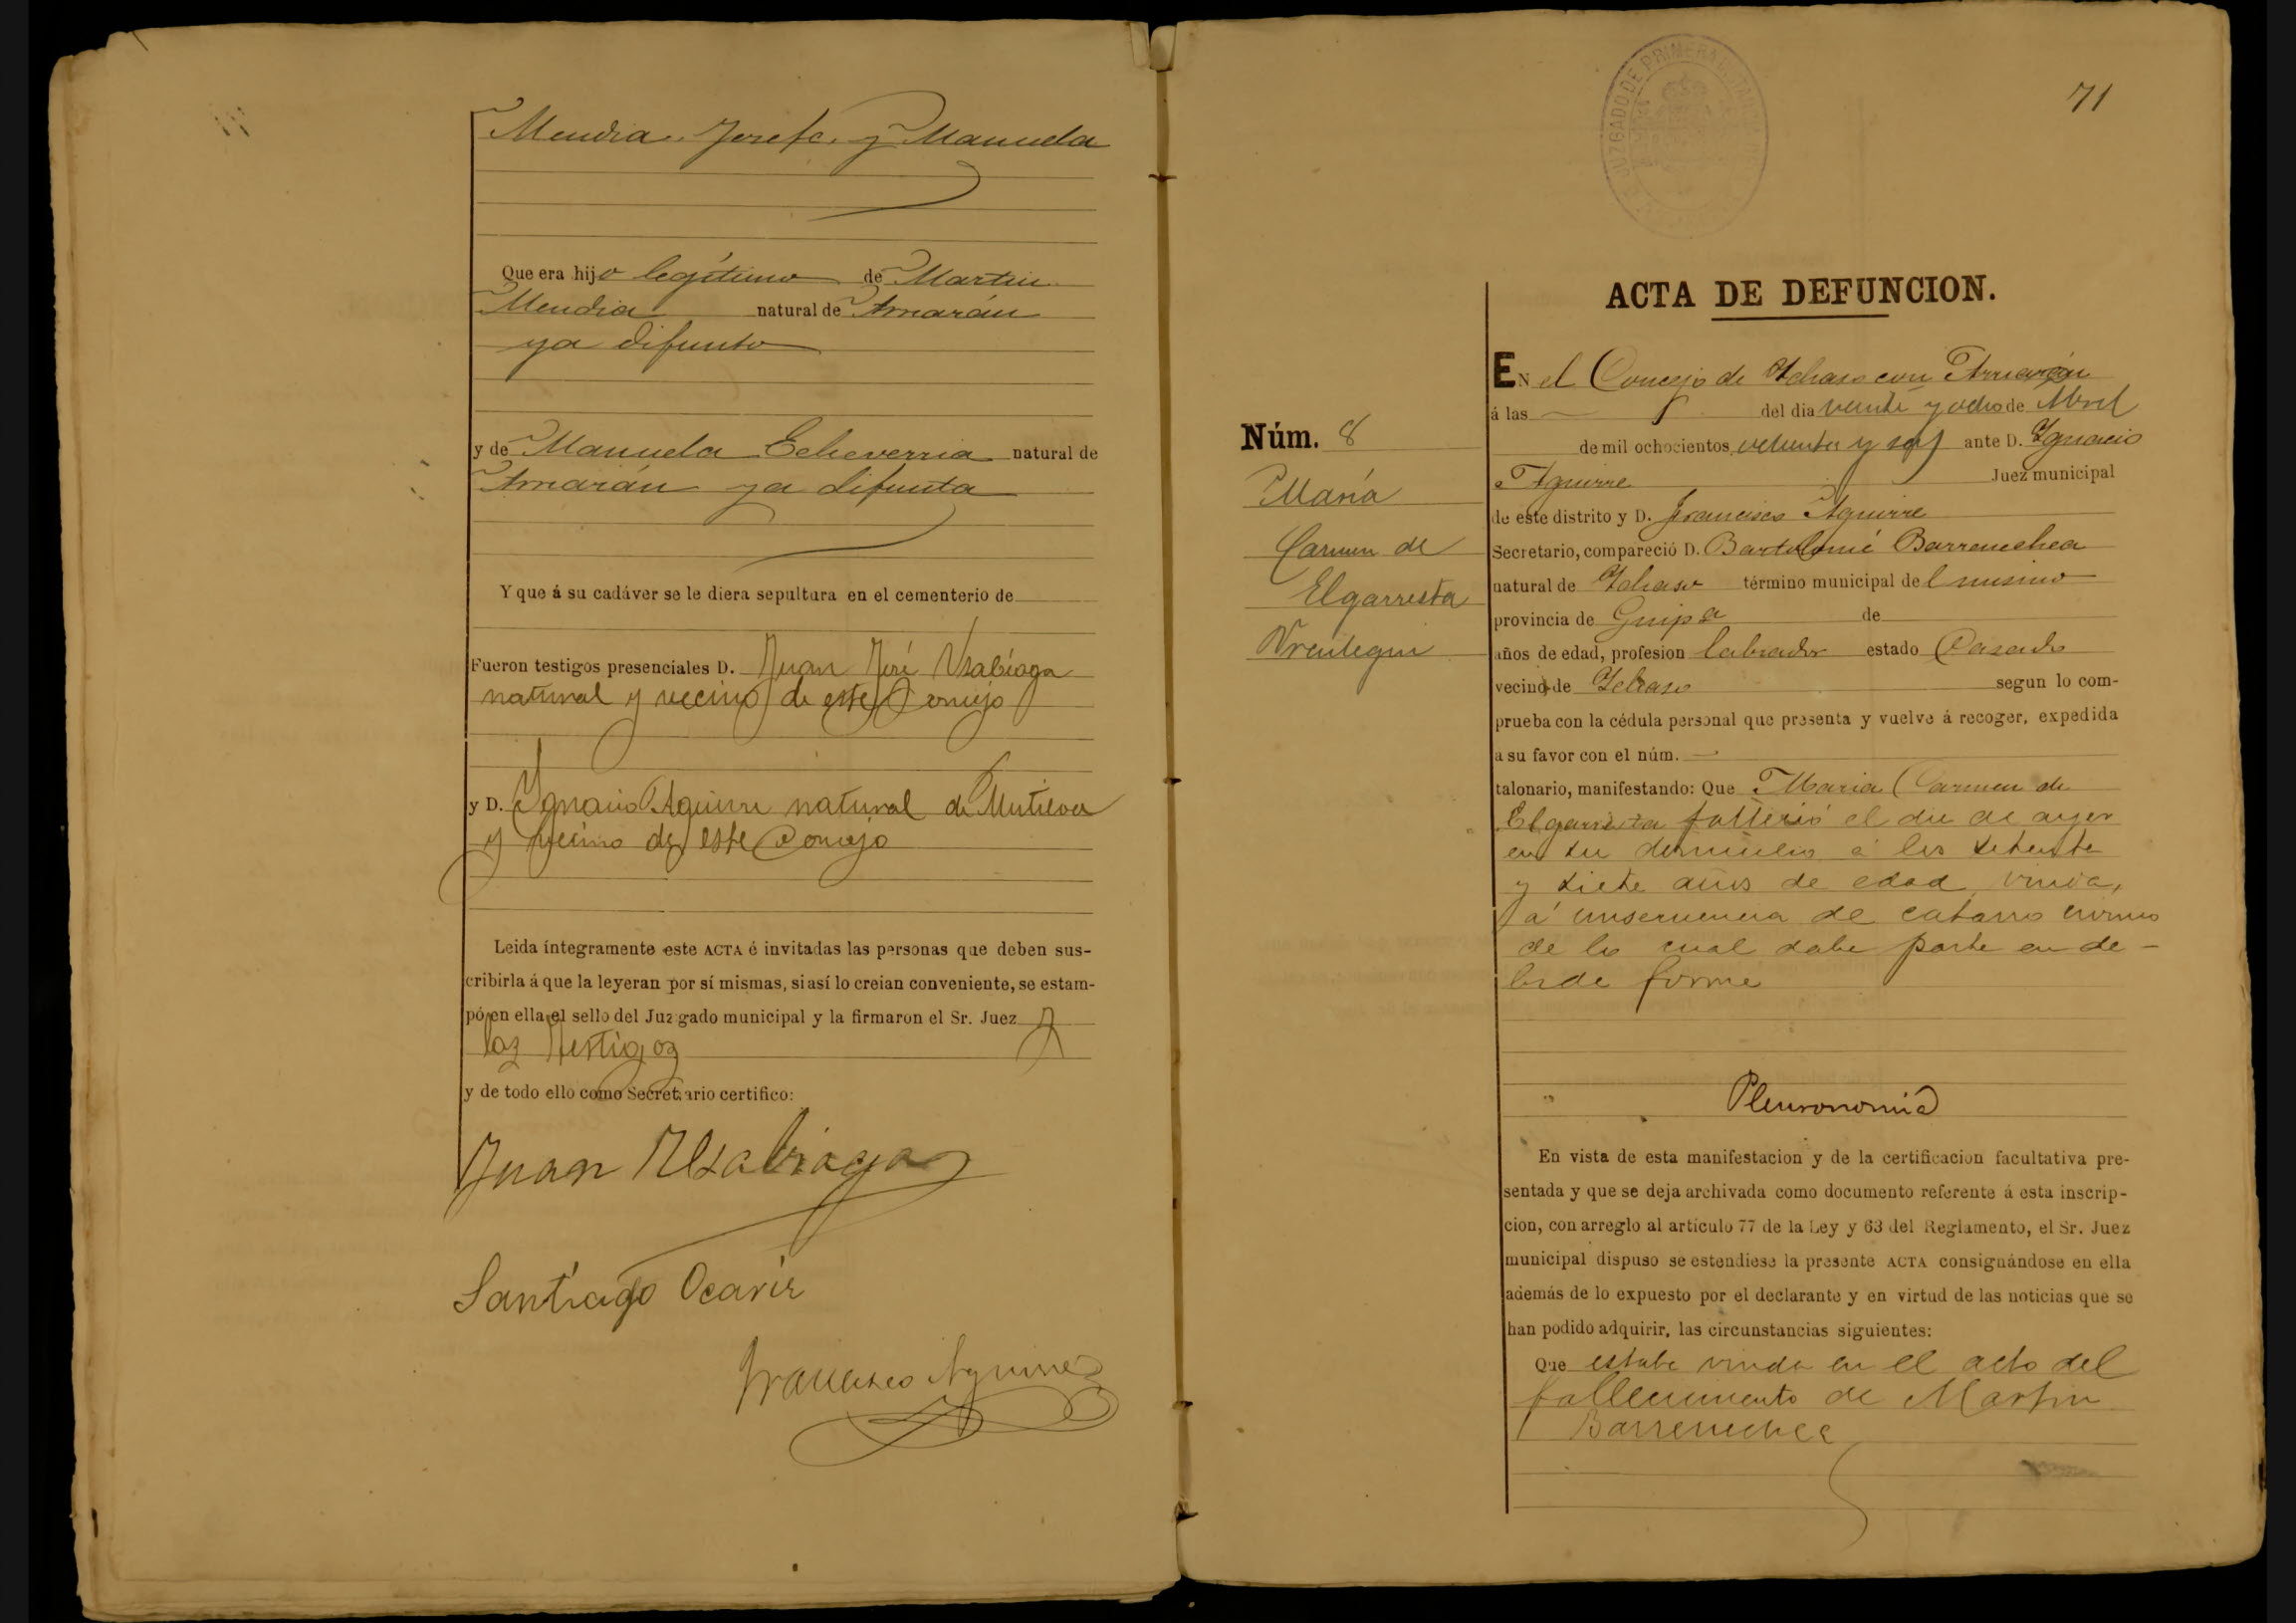 Mendia. Josefa. y Manuela
Que era hijo legítimo de Martin
Mendia natural de Arrarán
ya difunto
y de Manuela Echeverria natural de
Arrarán ya difunta
Y que á su cadáver se le diera sepultura en el cementerio de
Fueron testigos presenciales D. Juan José Usabiaga
natural y vecino de este Concejo
y D. Ygnacio Aguirre natural de Mutiloa
y vecino de este Concejo
Leida íntegramente este ACTA é invitadas las personas que deben sus-
cribirla á que la leyeran por sí mismas, si así lo creian conveniente, se estam-
pó en ella el sello del Juzgado municipal y la firmaron el Sr. Juez y
los testigos
y de todo ello como Secretario certifico:
Juan Usabiaga
Santiago Ocariz
Francisco Aguirre
JUZGADO DE PRIMERA INSTANCIA
71
ACTA DE DEFUNCION.
EN el Concejo de Ychaso con Arrarán
á las del dia veinte y ocho de Abril
de mil ochocientos ochenta y seis ante D. Ygnacio
Aguirre Juez municipal
de este distrito y D. Francisco Aguirre
Secretario, compareció D. Bartolomé Barrenechea
natural de Ychaso término municipal del mismo
provincia de Guipa de
años de edad, profesion labrador estado Casado
vecino de Ychaso segun lo com-
prueba con la cédula personal que presenta y vuelve á recoger, expedida
a su favor con el núm.
talonario, manifestando: Que Maria Carmen de
Elgarresta falleció el dia de ayer
en su domicilio á los setenta
y siete años de edad, viuda,
á consecuencia de catarro
de lo cual daba parte en de-
bida forma
Pleuronomia
En vista de esta manifestacion y de la certificacion facultativa pre-
sentada y que se deja archivada como documento referente á esta inscrip-
cion, con arreglo al artículo 77 de la Ley y 63 del Reglamento, el Sr. Juez
municipal dispuso se estendiese la presente ACTA consignándose en ella
además de lo expuesto por el declarante y en virtud de las noticias que se
han podido adquirir, las circunstancias siguientes:
Que estaba viuda en el acto del
fallecimiento de Martin
Barrenechea
Núm. 8
María
Carmen de
Elgarresta
Vrenteguí